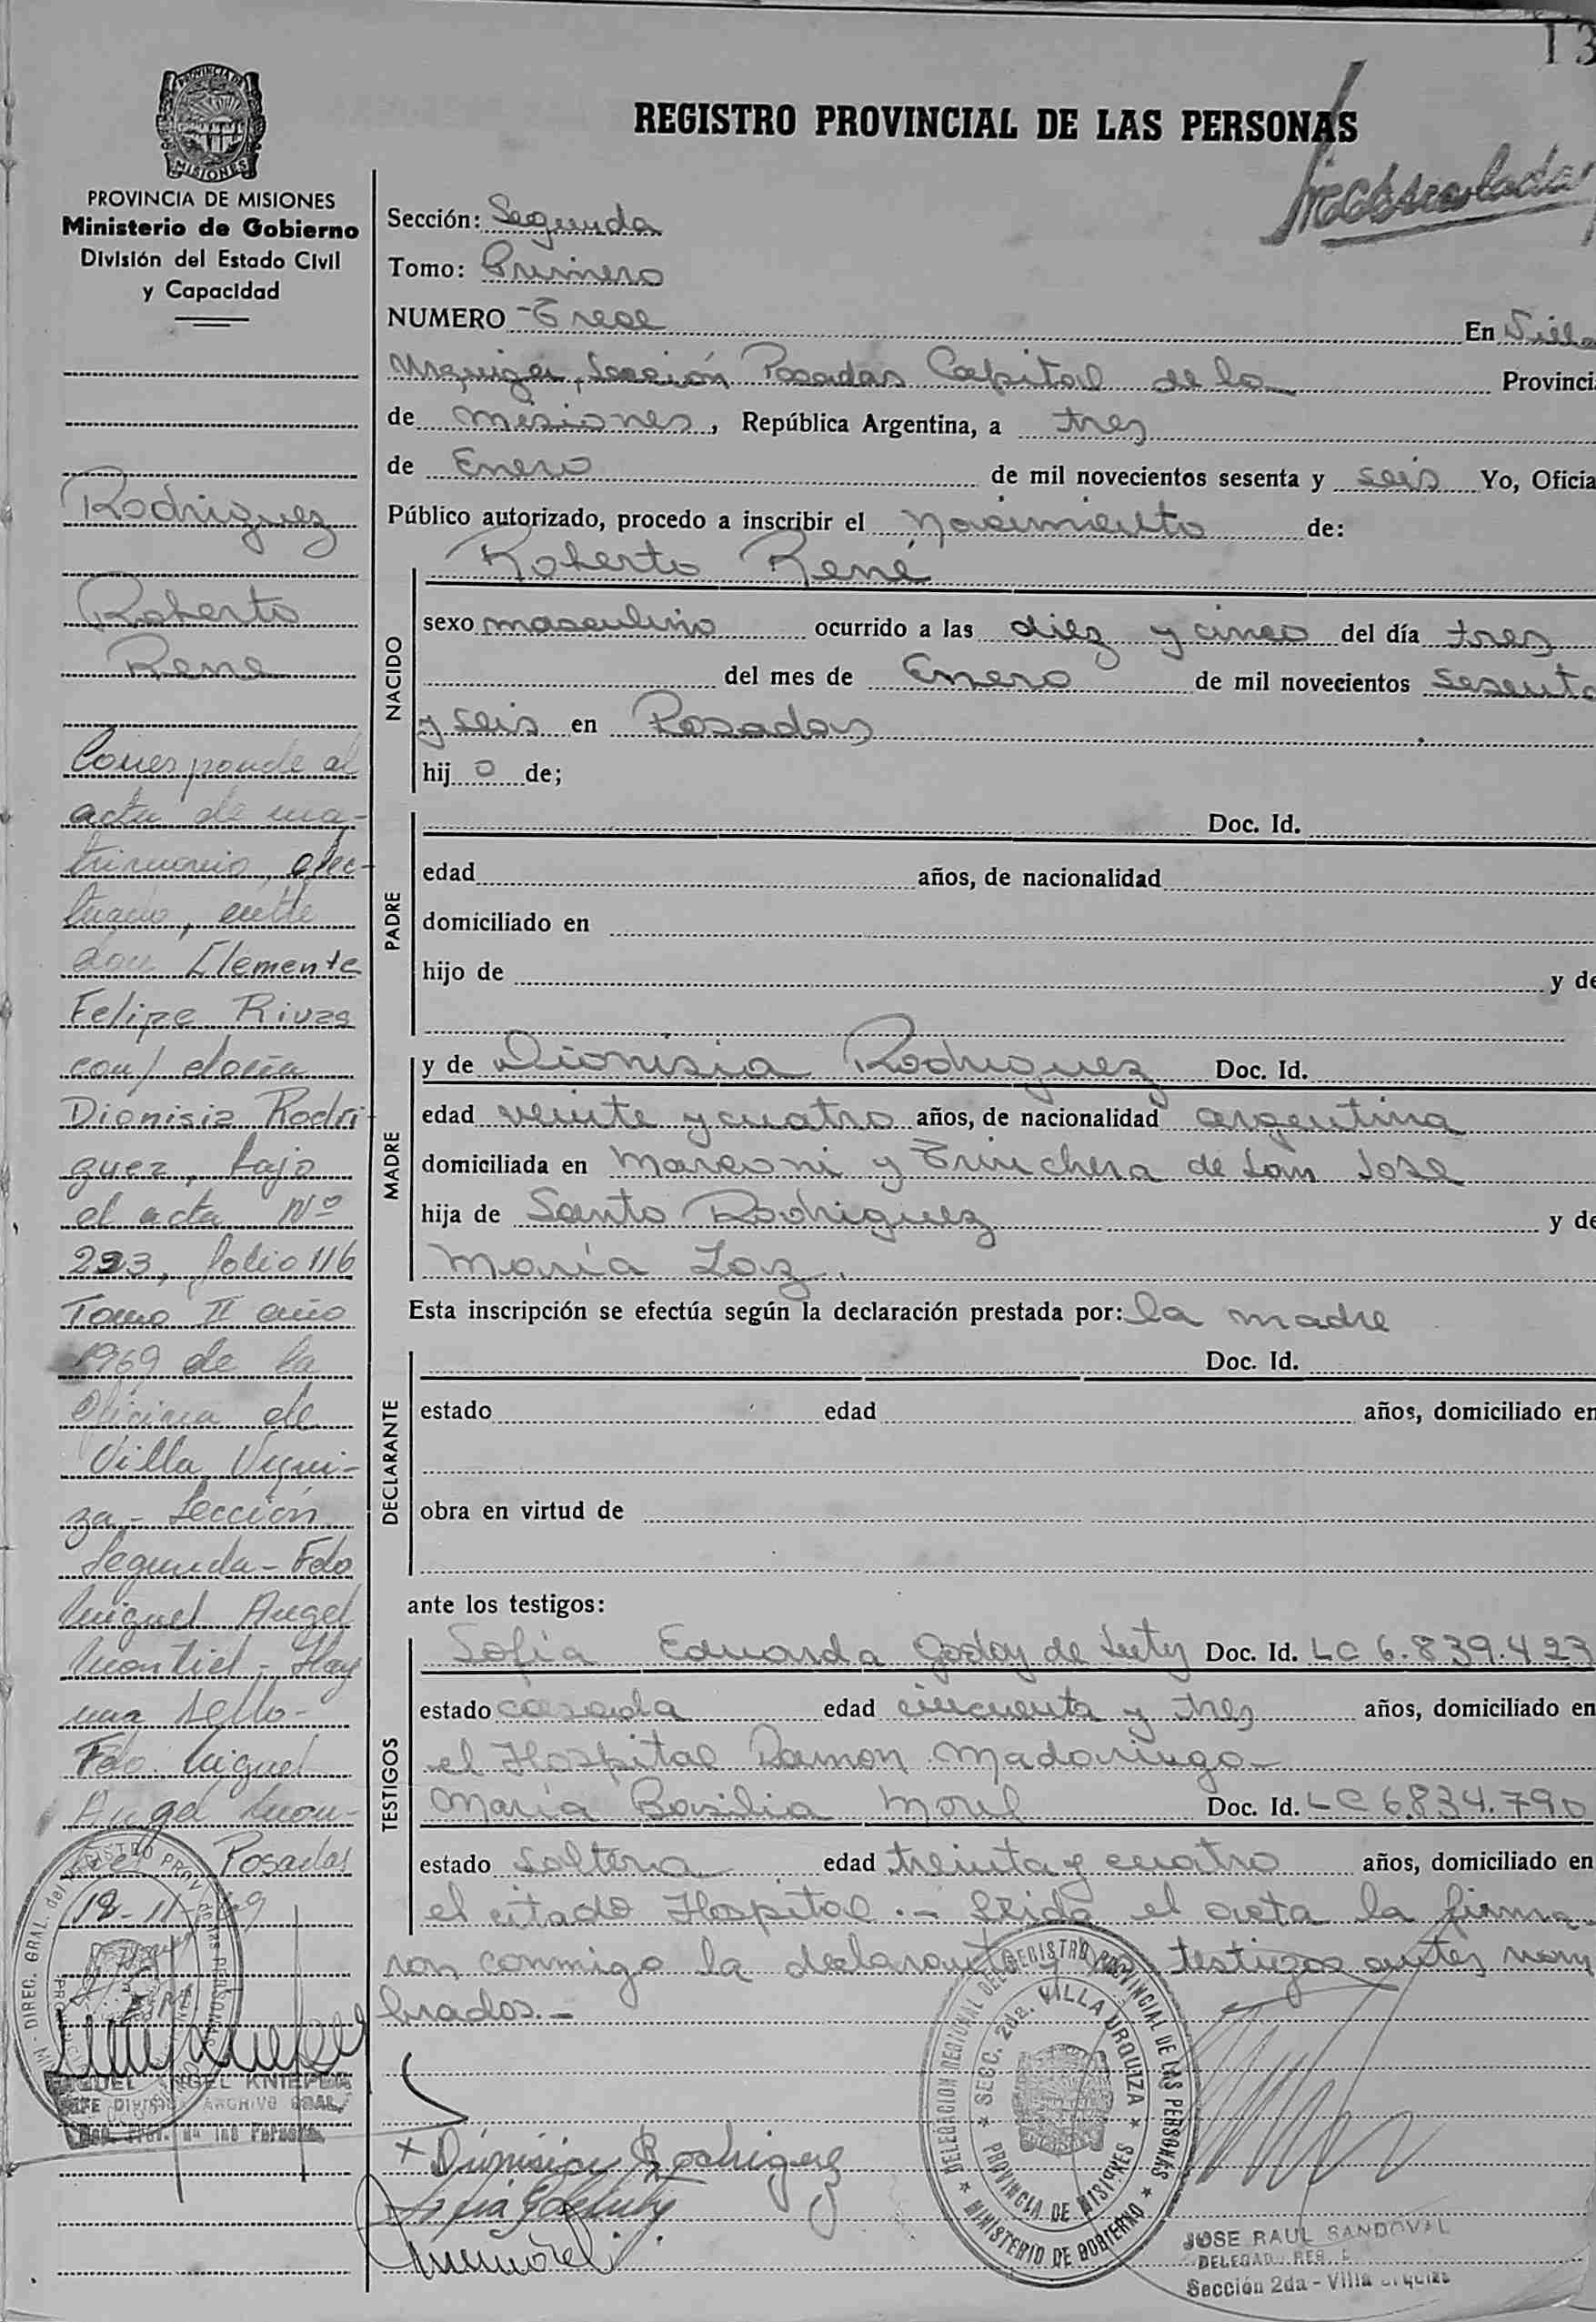 13
REGISTRO PROVINCIAL DE LAS PERSONAS
PROVINCIA DE
MISIONES
PROVINCIA DE MISIONES
Ministerio de Gobierno
División del Estado Civil
y Capacidad
Rodriguez
Roberto
Rene
Corresponde al
acta de ma-
trimonio, efec-
tuado, entre
don Clemente
Felipe Rivas
con/ doña
Dionisia Rodri-
guez, bajo
el acta Nº
223, folio 116
Tomo II año
1969 de la
Oficina de
Villa Urqui-
za - Sección
Segunda - Fdo
Miguel Angel
Montiel - Hay
una sello -
Fdo. Miguel
Angel Mon-
Posadas
18-11-69
Sección: Segunda
Tomo: Primero
NUMERO Trece En Villa
Urquiza, Sección Posadas Capital de la Provinci
de Misiones, República Argentina, a tres
de Enero de mil novecientos sesenta y seis Yo, Oficia
Público autorizado, procedo a inscribir el Nacimiento de:
NACIDO
Roberto René
sexo masculino ocurrido a las diez y cinco del día tres
del mes de Enero de mil novecientos sesenta
y seis en Posadas
hij o de;
PADRE
Doc. Id.
edad años, de nacionalidad
domiciliado en
hijo de y de
MADRE
y de Dionisia Rodriguez Doc. Id.
edad veinte y cuatro años, de nacionalidad argentina
domiciliada en Marconi y Trinchera de San Jose
hija de Santo Rodriguez y de
María Loz.
Esta inscripción se efectúa según la declaración prestada por: la madre
DECLARANTE
Doc. Id.
estado edad años, domiciliado en
obra en virtud de
ante los testigos:
TESTIGOS
Sofía Eduarda Godoy de Doc. Id. LC 6.839.423
estado casada edad cincuenta y tres años, domiciliado en
el Hospital Ramon Madariaga-
María Basilia Morel Doc. Id. LC 6.834.790
estado Soltera edad treinta y cuatro años, domiciliado en
el citado Hospital.- Leída el acta la firma-
ron conmigo la declarante y testigos antes nom
brados.-
MIGUEL ANGEL
JEFE DIVISION ARCHIVO GRAL.
Reg. Prov. de las Personas
Dionisia Rodriguez
DELEGACION REGIONAL DEL REGISTRO PROVINCIAL DE LAS PERSONAS
SECC. 2da. VILLA URQUIZA
PROVINCIA DE MISIONES
MINISTERIO DE GOBIERNO
JOSE RAUL SANDOVAL
Sección 2da - Villa Urquiza